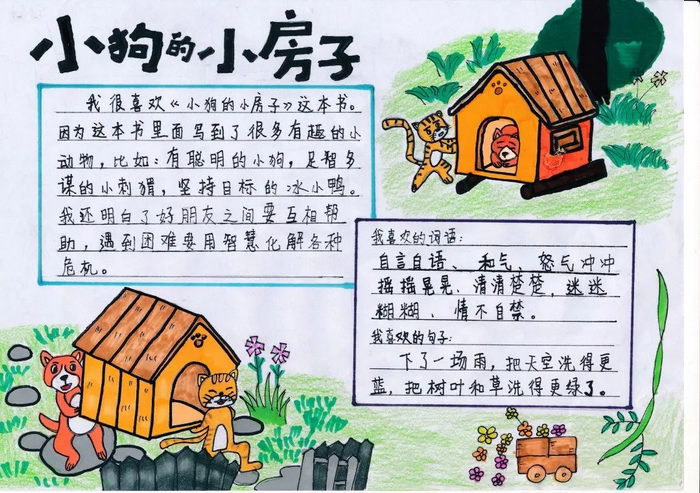 小狗的小房子
我很喜欢《小狗的小房子》这本书。
因为这本书里面写到了很多有趣的小
动物，比如：有聪明的小狗，足智多
谋的小刺猬，坚持目标的冰小鸭。
我还明白了好朋友之间要互相帮
助，遇到困难要用智慧化解各种
危机。
我喜欢的词语：
自言自语、和气、怒气冲冲
摇摇晃晃、清清楚楚、迷迷
糊糊、情不自禁。
我喜欢的句子：
下了一场雨，把天空洗得更
蓝，把树叶和草洗得更绿了。